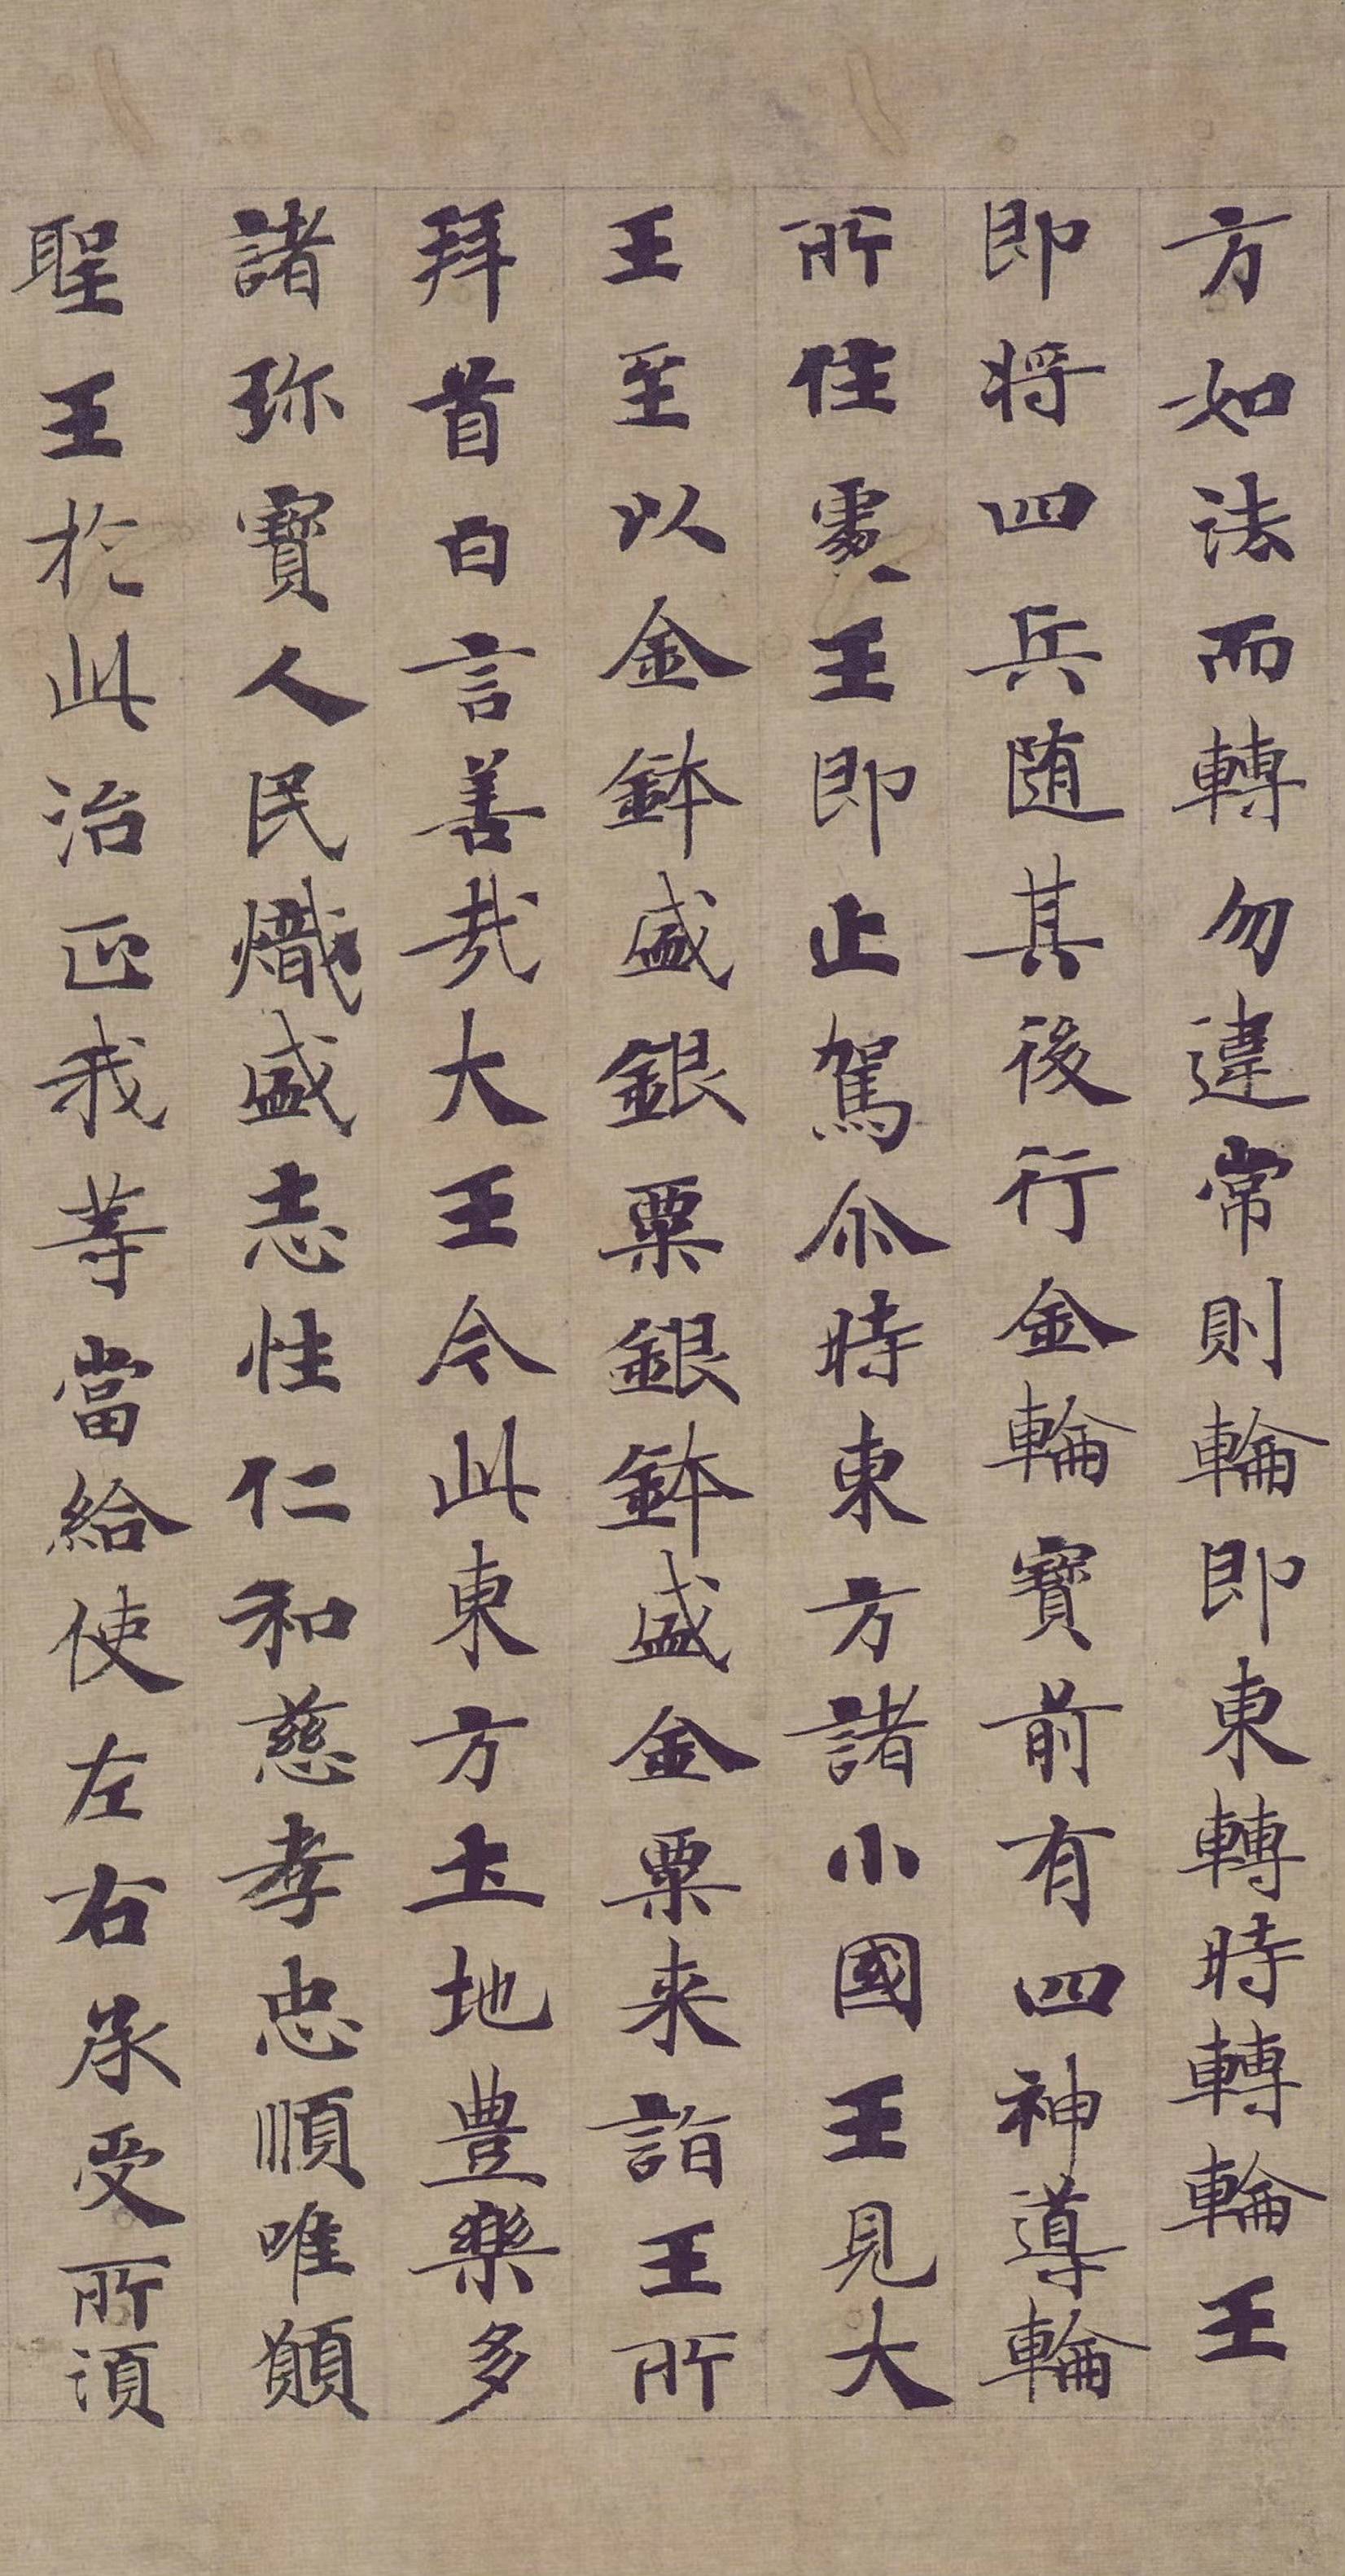 方如法而轉勿違常則輪即東轉時轉輪王
即将四兵随其後行金輪寶前有四神導輪
所住處王即止駕尒時東方諸小國王見大
王至以金鉢盛銀粟銀鉢盛金粟来詣王所
拜首白言善哉大王今此東方土地豊樂多
諸珎寶人民熾盛志性仁和慈孝忠順唯願
聖王於此治正我等當給使左右承受所須